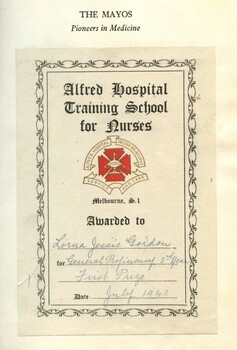 THE MAYOS
Pioneers in Medicine
Alfred Hospital
Training School
for Nurses
Melbourne, S.1
Awarded to
Lorna Jessie Gordon
for General Proficiency 3rd Year
First Prize
Date July 1942